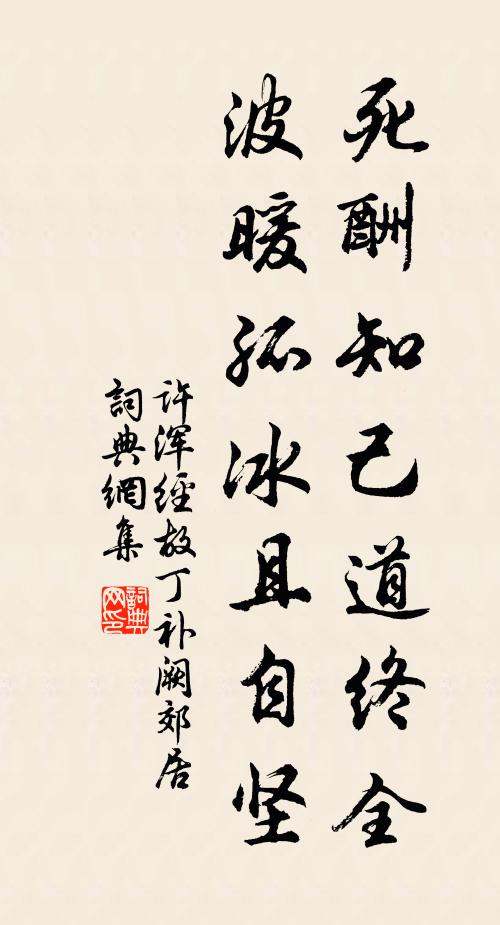 死酬知己道终全
波暖孤冰且自坚
许浑经故丁补阙郊居
詞典網集
詞典
网印